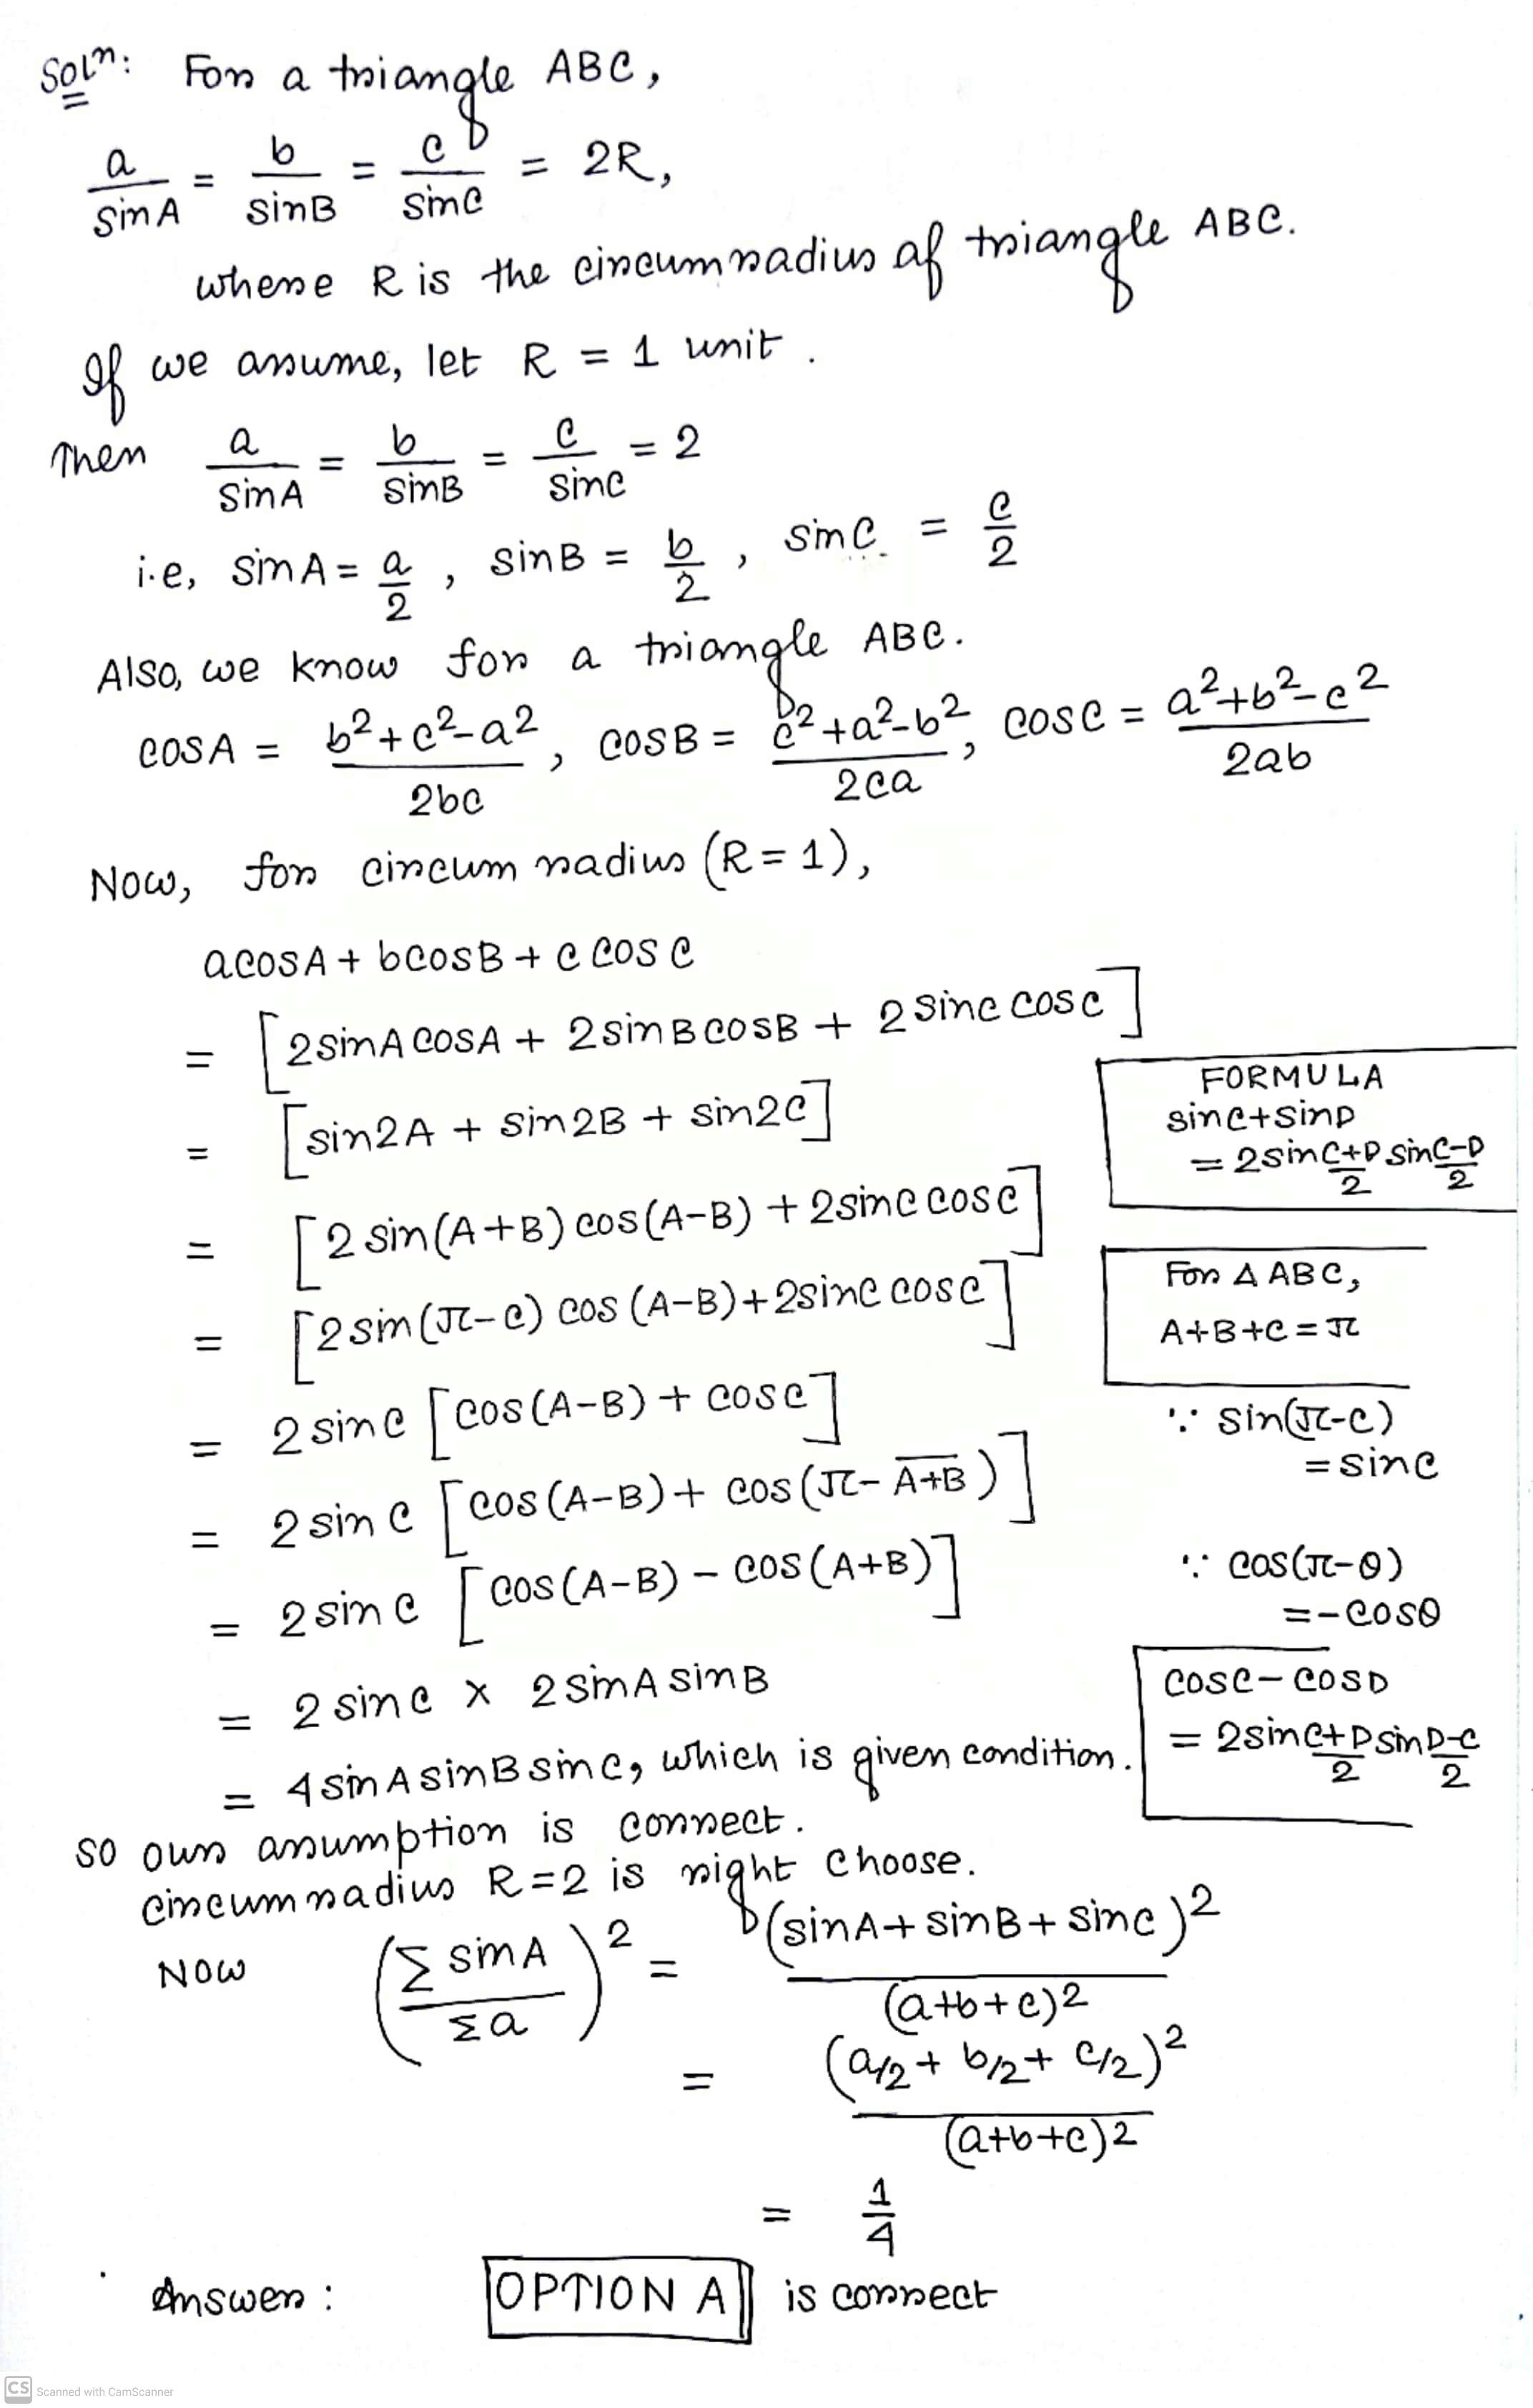 Solⁿ: For a triangle ABC,
a/sinA = b/sinB = c/sinC = 2R,
where R is the circumradius of triangle ABC.
If we assume, let R = 1 unit.
Then a/sinA = b/sinB = c/sinC = 2
i.e, sinA = a/2, sinB = b/2, sinC = c/2
Also, we know for a triangle ABC.
cosA = (b²+c²-a²)/2bc, cosB = (c²+a²-b²)/2ca, cosC = (a²+b²-c²)/2ab
Now, for circum radius (R=1),
acosA + bcosB + c cosC
= [2sinAcosA + 2sinBcosB + 2sinC cosC]
= [sin2A + sin2B + sin2C]
FORMULA
sinC+sinD
= 2sin (C+D)/2 sin (C-D)/2
= [2 sin(A+B) cos(A-B) + 2sinC cosC]
= [2sin(π-C) cos(A-B) + 2sinC cosC]
For Δ ABC,
A+B+C = π
= 2sinC [cos(A-B) + cosC]
∵ sin(π-C)
= sinC
= 2sinC [cos(A-B) + cos(π- A̅+̅B̅)]
= 2sinC [cos(A-B) - cos(A+B)]
∵ cos(π-θ)
= -cosθ
= 2sinC x 2sinA sinB
= 4sinAsinBsinC, which is given condition.
cosC - cosD
= 2sin (C+D)/2 sin (D-C)/2
So our assumption is correct.
circumradius R=2 is right choose.
Now (Σ sinA / Σa)² = (sinA + sinB + sinC)² / (a+b+c)²
= (a/2 + b/2 + c/2)² / (a+b+c)²
= 1/4
Answer: OPTION A is correct
CS Scanned with CamScanner